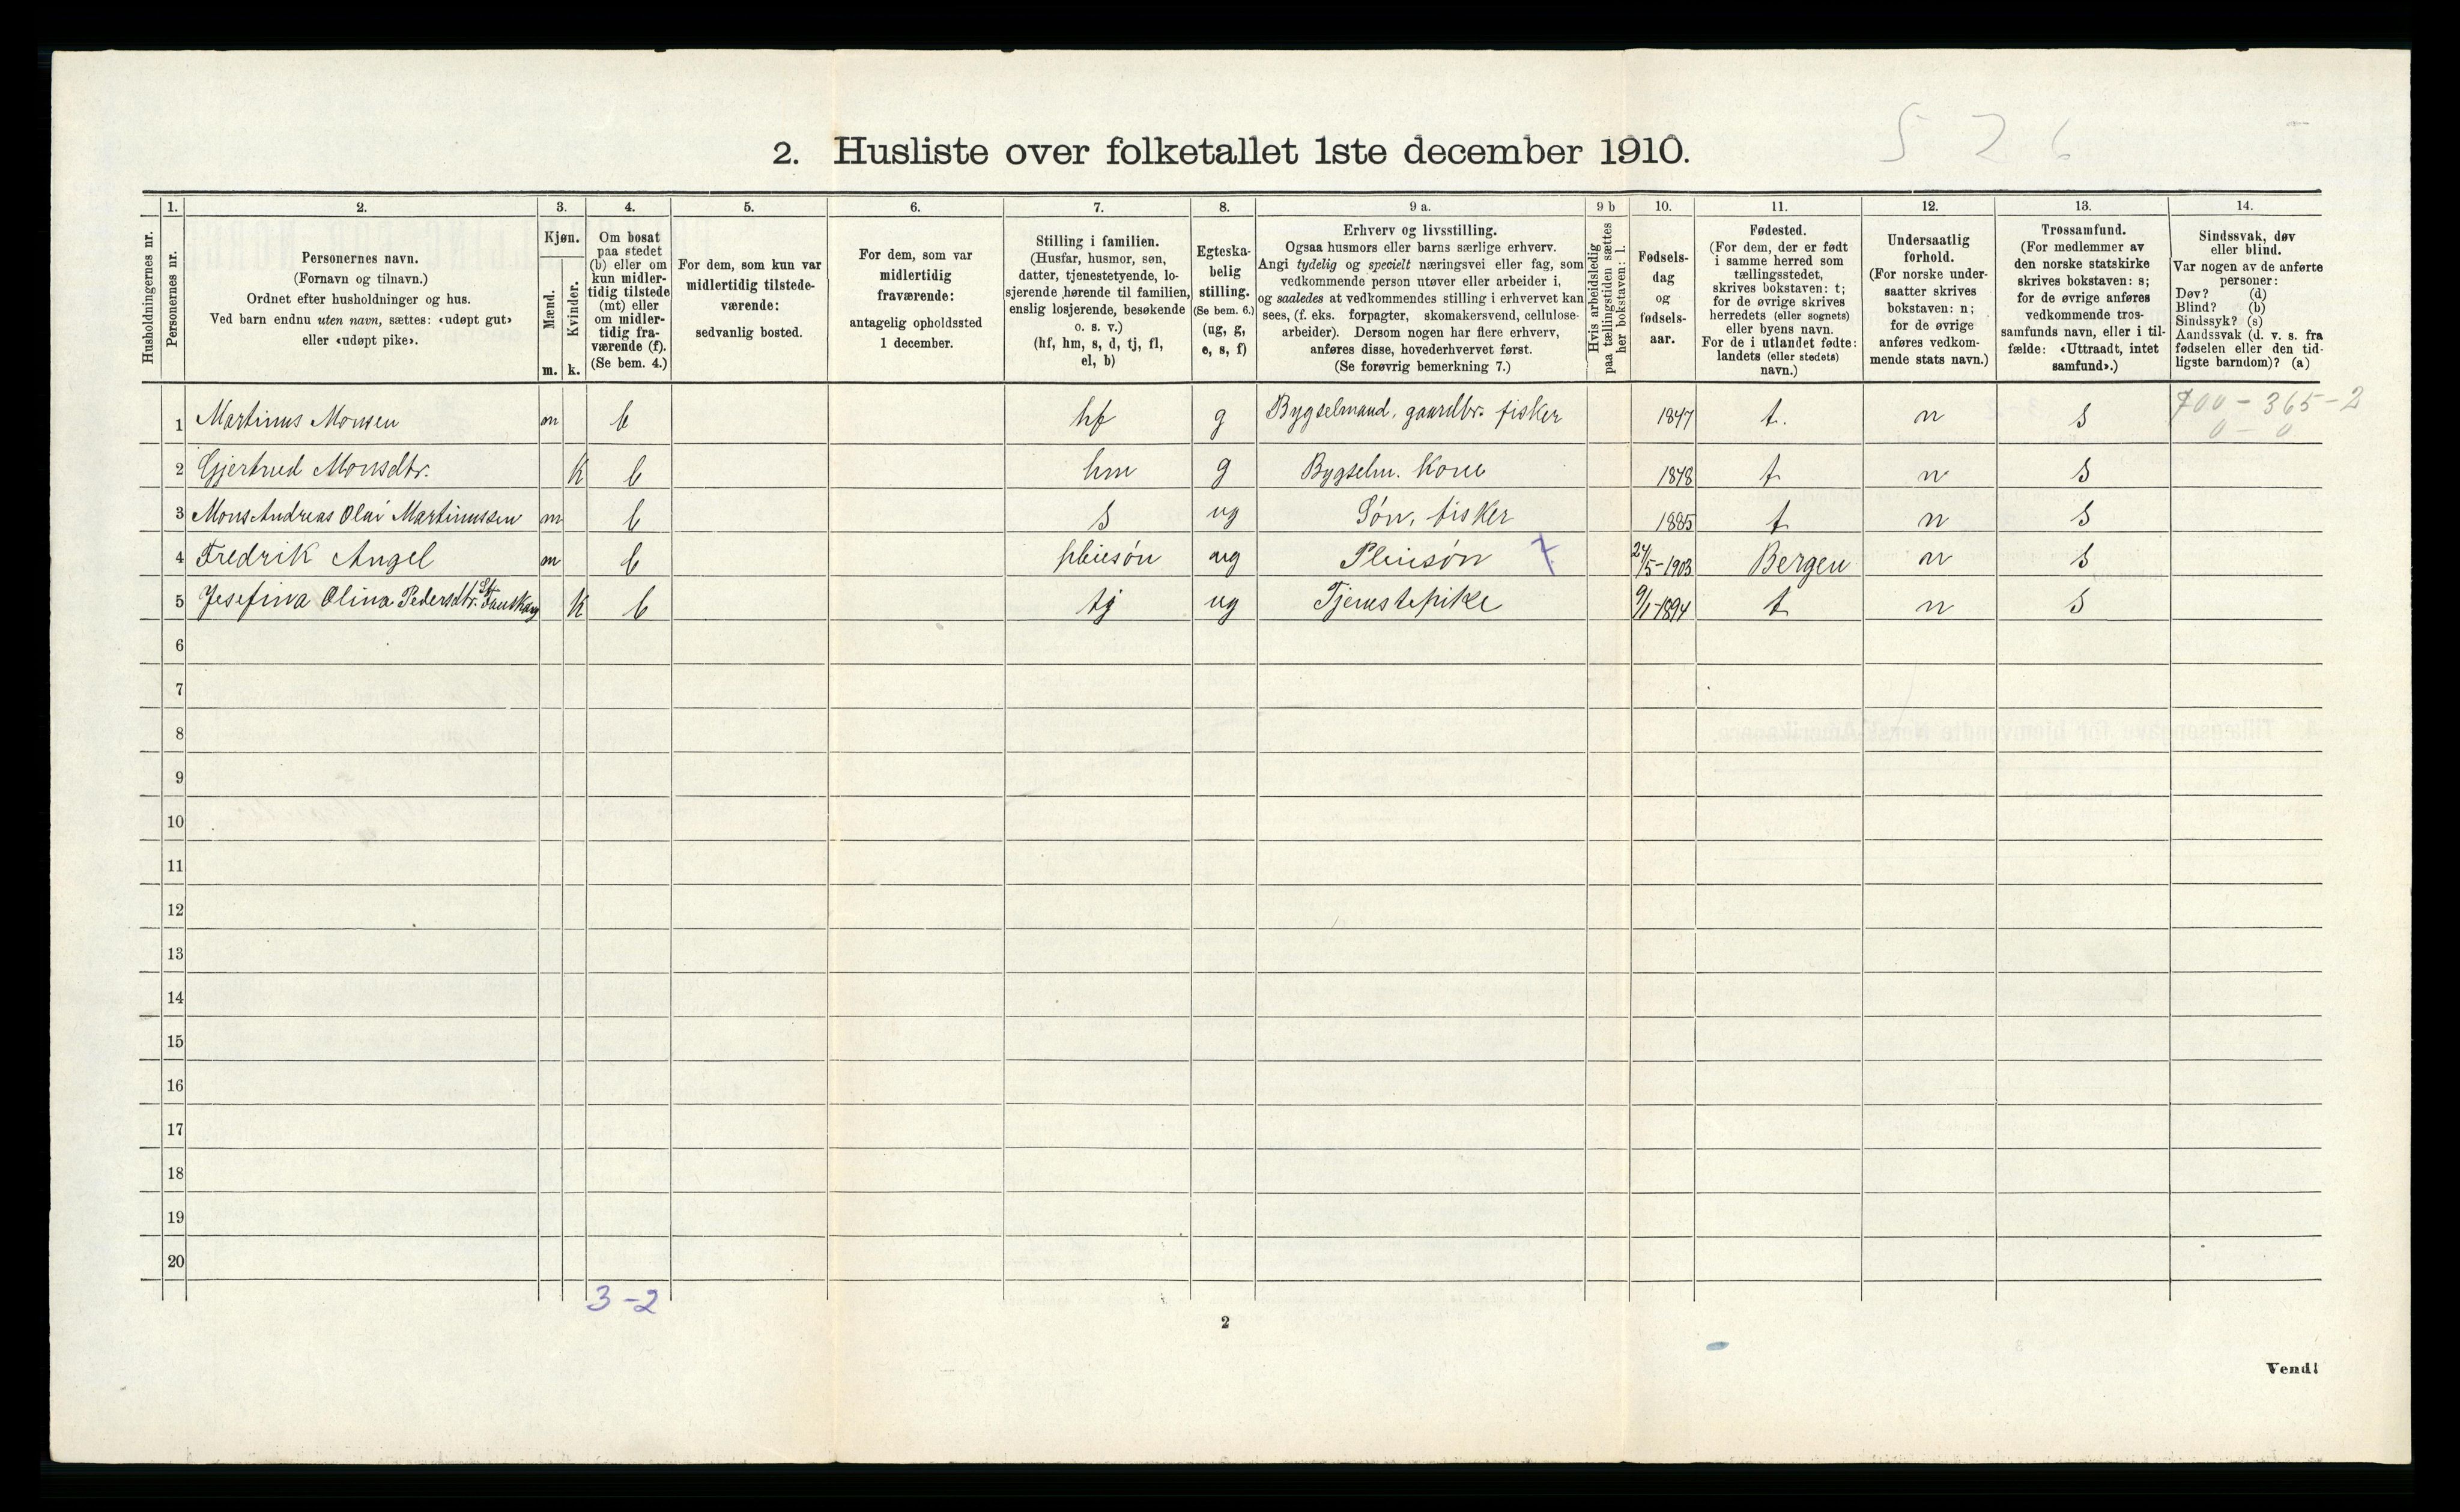 5 2 6
2. Husliste over folketallet 1ste december 1910.
Husholdningernes nr.
1. Personernes nr.
2. Personernes navn. (Fornavn og tilnavn.) Ordnet efter husholdninger og hus. Ved barn endnu uten navn, sættes: «udøpt gut» eller «udøpt pike».
3. Kjøn. Mænd. m. Kvinder. k.
4. Om bosat paa stedet (b) eller om kun midlertidig tilstede (mt) eller om midlertidig fraværende (f). (Se bem. 4.)
5. For dem, som kun var midlertidig tilstedeværende: sedvanlig bosted.
6. For dem, som var midlertidig fraværende: antagelig opholdssted 1 december.
7. Stilling i familien. (Husfar, husmor, søn, datter, tjenestetyende, losjerende hørende til familien, enslig losjerende, besøkende o. s. v.) (hf, hm, s, d, tj, fl, el, b)
8. Egteskabelig stilling. (Se bem. 6.) (ug, g, e, s, f)
9 a. Erhverv og livsstilling. Ogsaa husmors eller barns særlige erhverv. Angi tydelig og specielt næringsvei eller fag, som vedkommende person utøver eller arbeider i, og saaledes at vedkommendes stilling i erhvervet kan sees, (f. eks. forpagter, skomakersvend, cellulosearbeider). Dersom nogen har flere erhverv, anføres disse, hovederhvervet først. (Se forøvrig bemerkning 7.)
9 b Hvis arbeidsledig paa tællingstiden sættes her bokstaven: l.
10. Fødselsdag og fødselsaar.
11. Fødested. (For dem, der er født i samme herred som tællingsstedet, skrives bokstaven: t; for de øvrige skrives herredets (eller sognets) eller byens navn. For de i utlandet fødte: landets (eller stedets) navn.)
12. Undersaatlig forhold. (For norske undersaatter skrives bokstaven: n; for de øvrige anføres vedkommende stats navn.)
13. Trossamfund. (For medlemmer av den norske statskirke skrives bokstaven: s; for de øvrige anføres vedkommende trossamfunds navn, eller i tilfælde: «Uttraadt, intet samfund».)
14. Sindssvak, døv eller blind. Var nogen av de anførte personer: Døv? (d) Blind? (b) Sindssyk? (s) Aandssvak (d. v. s. fra fødselen eller den tidligste barndom)? (a)
1 Martinus Monsen m b hf g Bygselmand, gaardbr. fisker 1847 t. n s 700 - 365 - 2
0 - 0
2 Gjertrud Monsdtr. K b hm g Bygselm. Kone 1848 t n s
3 Mons Andreas Olai Martinussen m b s ug Søn, fisker 1885 t n s
4 Fredrik Angel m b pleiesøn ug Pleiesøn 7 24/5-1903 Bergen n s
5 Josefina Olina Pedersdtr. K b tj ug Tjenestepike 9/1-1894 t n s
6
7
8
9
10
11
12
13
14
15
16
17
18
19
20
3-2
2
Vend!